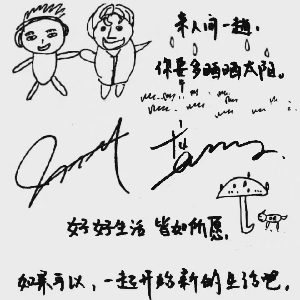 来人间一趟，
你要多晒晒太阳。
好好生活 皆如所愿。
如果可以，一起开始新的生活吧。